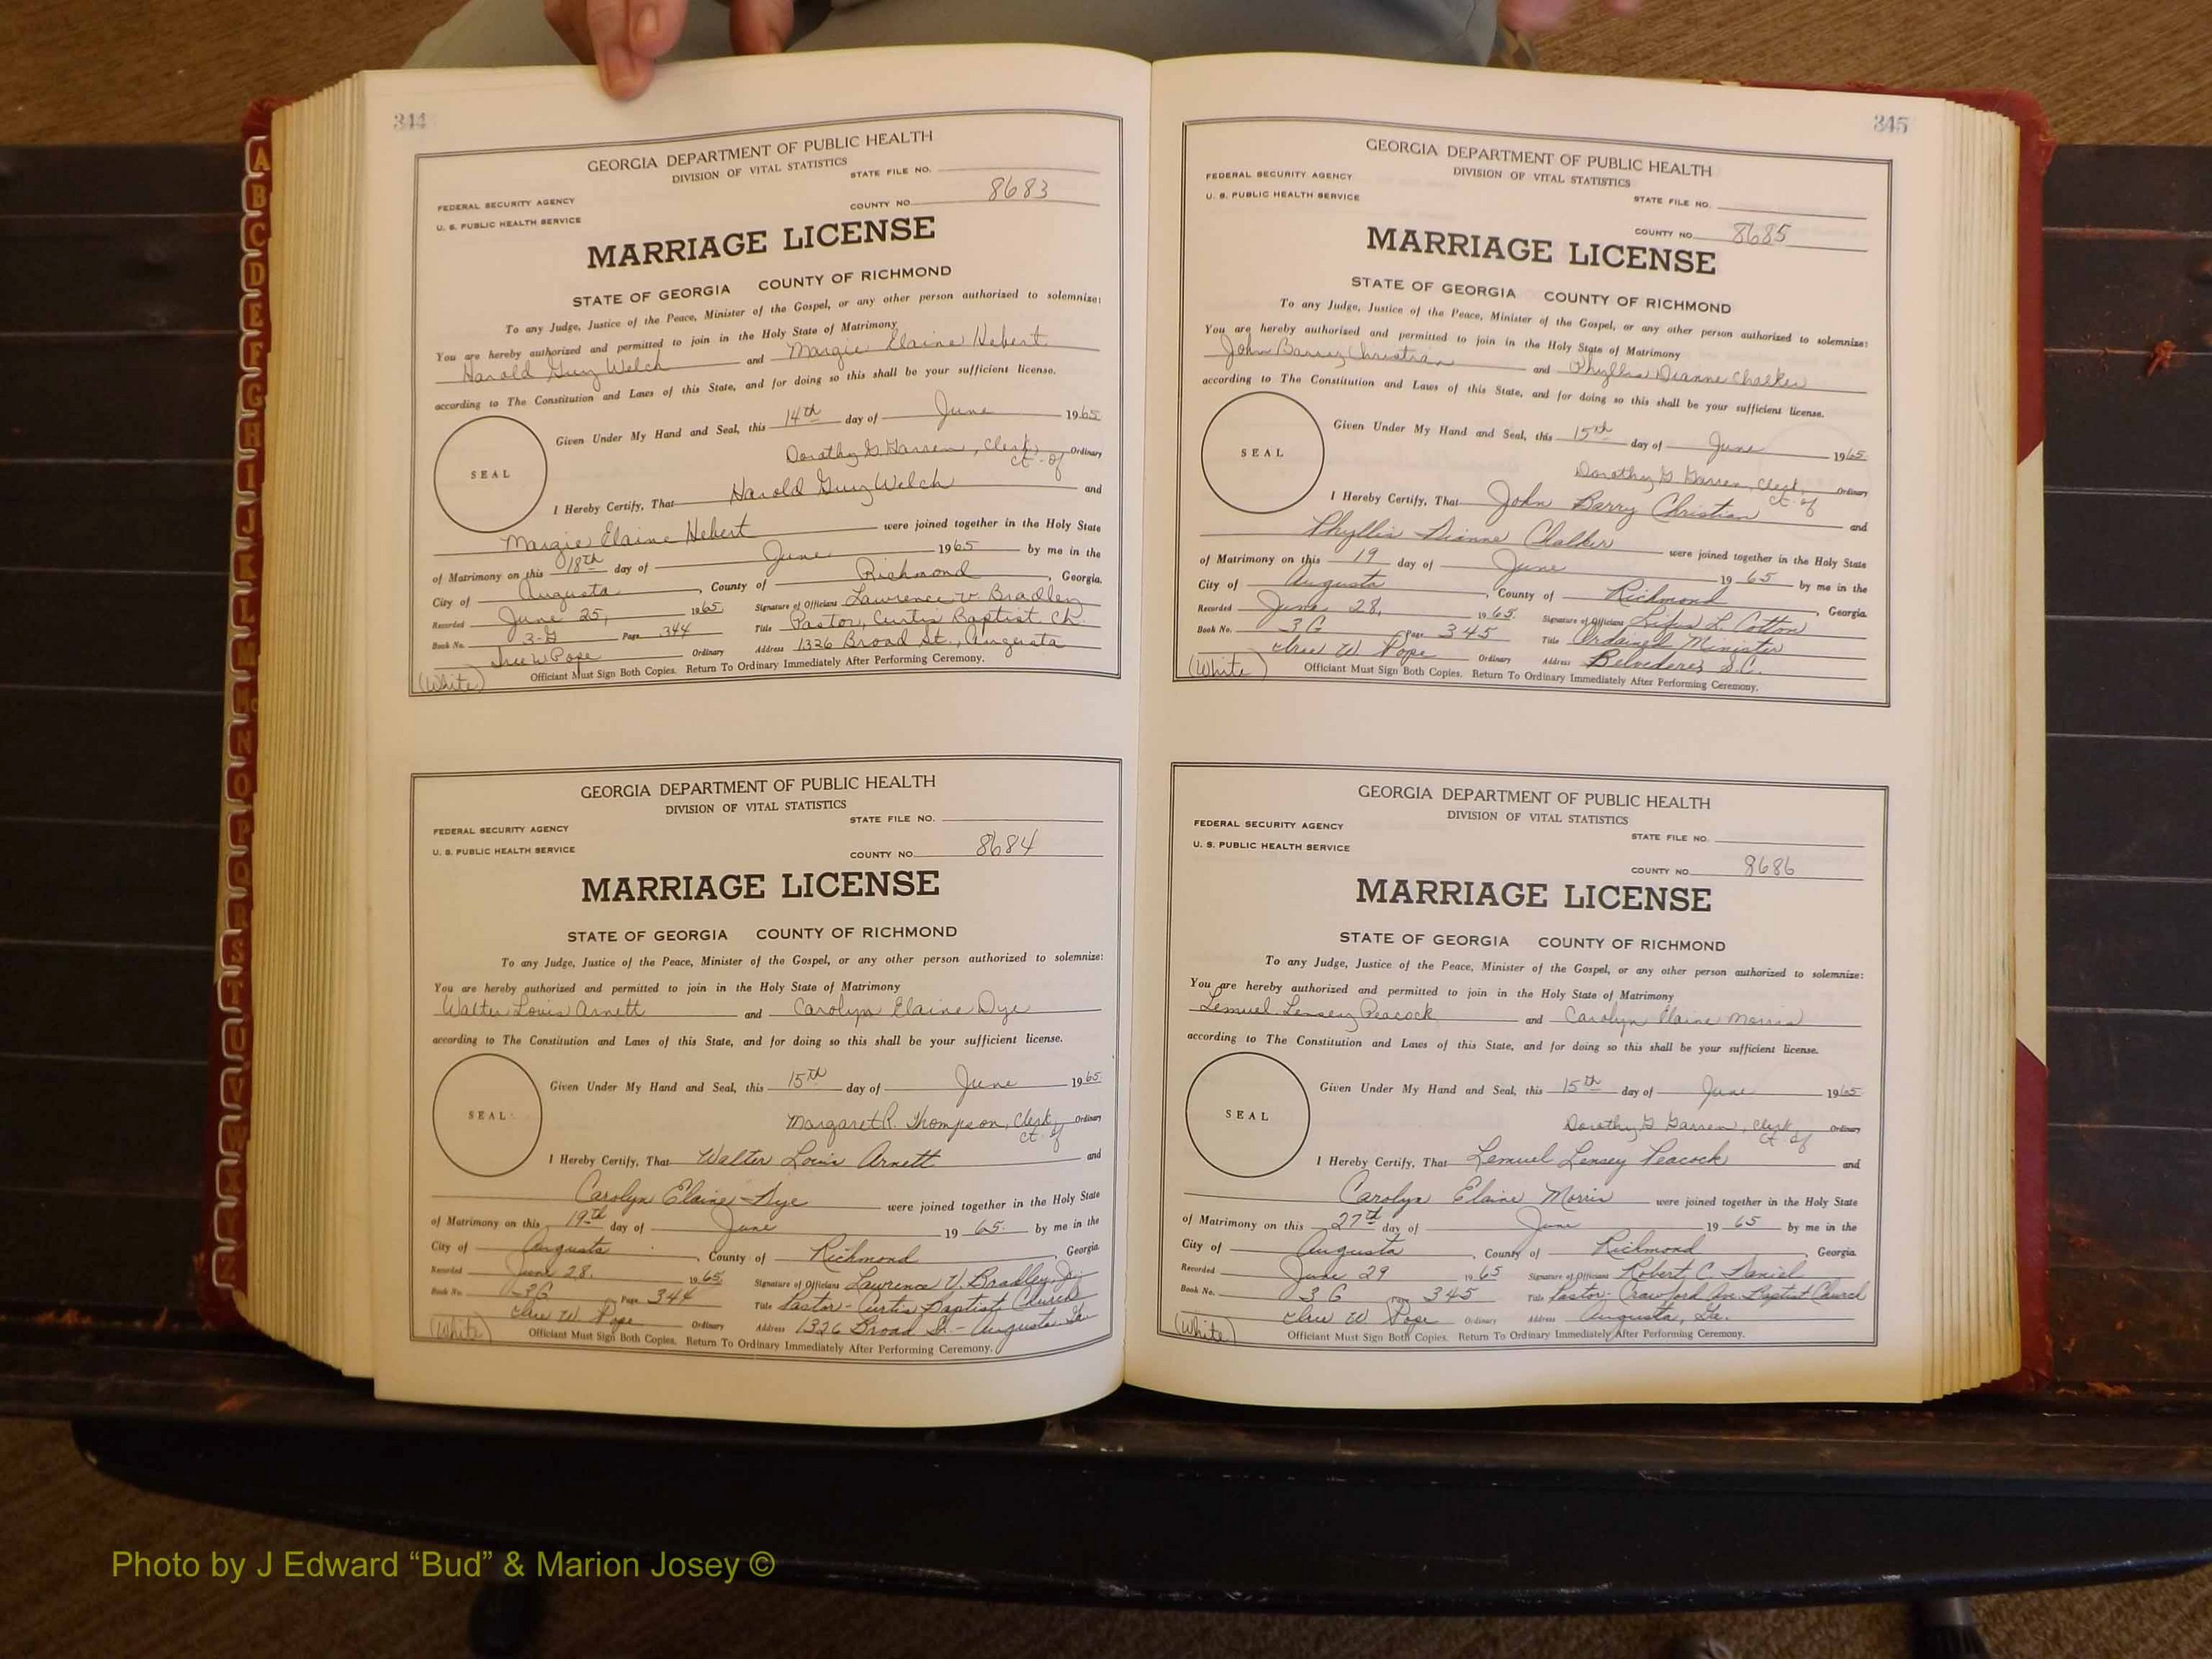 344
GEORGIA DEPARTMENT OF PUBLIC HEALTH
DIVISION OF VITAL STATISTICS
STATE FILE NO.
FEDERAL SECURITY AGENCY
COUNTY NO. 8683
U. S. PUBLIC HEALTH SERVICE
MARRIAGE LICENSE
STATE OF GEORGIA COUNTY OF RICHMOND
To any Judge, Justice of the Peace, Minister of the Gospel, or any other person authorized to solemnize:
You are hereby authorized and permitted to join in the Holy State of Matrimony
Harold Guy Welch and Margie Elaine Hebert
according to The Constitution and Laws of this State, and for doing so this shall be your sufficient license.
SEAL
Given Under My Hand and Seal, this 14th day of June 1965
Dorothy G. Garren, Clerk, Ct. of Ordinary
I Hereby Certify, That Harold Guy Welch and
Margie Elaine Hebert were joined together in the Holy State
of Matrimony on this 18th day of June 1965 by me in the
City of Augusta, County of Richmond, Georgia.
Recorded June 25, 1965 Signature of Officiant Lawrence V. Bradley
Book No. 3-G Page 344 Title Pastor, Curtis Baptist Ch.
W Pope Ordinary Address 1326 Broad St., Augusta
(White) Officiant Must Sign Both Copies. Return To Ordinary Immediately After Performing Ceremony.
GEORGIA DEPARTMENT OF PUBLIC HEALTH
DIVISION OF VITAL STATISTICS
STATE FILE NO.
FEDERAL SECURITY AGENCY
U. S. PUBLIC HEALTH SERVICE
COUNTY NO. 8684
MARRIAGE LICENSE
STATE OF GEORGIA COUNTY OF RICHMOND
To any Judge, Justice of the Peace, Minister of the Gospel, or any other person authorized to solemnize:
You are hereby authorized and permitted to join in the Holy State of Matrimony
Walter Louis Arnett and Carolyn Elaine Dye
according to The Constitution and Laws of this State, and for doing so this shall be your sufficient license.
SEAL
Given Under My Hand and Seal, this 15th day of June 1965
Margaret R. Thompson, Clerk, Ct. of Ordinary
I Hereby Certify, That Walter Louis Arnett and
Carolyn Elaine Dye were joined together in the Holy State
of Matrimony on this 19th day of June 1965. by me in the
City of Augusta, County of Richmond, Georgia
Recorded June 28, 1965 Signature of Officiant Lawrence V. Bradley, Jr.
Book No. 3G Page 344 Title Pastor - Curtis Baptist Church
W Pope Ordinary Address 1326 Broad St. - Augusta, Ga
(White) Officiant Must Sign Both Copies. Return To Ordinary Immediately After Performing Ceremony.
345
GEORGIA DEPARTMENT OF PUBLIC HEALTH
DIVISION OF VITAL STATISTICS
FEDERAL SECURITY AGENCY
U. S. PUBLIC HEALTH SERVICE
STATE FILE NO.
COUNTY NO. 8685
MARRIAGE LICENSE
STATE OF GEORGIA COUNTY OF RICHMOND
To any Judge, Justice of the Peace, Minister of the Gospel, or any other person authorized to solemnize:
You are hereby authorized and permitted to join in the Holy State of Matrimony
John Barry Christian and Phyllis Dianne Chalker
according to The Constitution and Laws of this State, and for doing so this shall be your sufficient license.
SEAL
Given Under My Hand and Seal, this 15th day of June 1965
Dorothy G Garren, Clerk, Ct. of Ordinary
I Hereby Certify, That John Barry Christian and
Phyllis Dianne Chalker were joined together in the Holy State
of Matrimony on this 19 day of June 1965 by me in the
City of Augusta, County of Richmond, Georgia
Recorded June 28, 1965. Signature of Officiant L. Cotton
Book No. 3G Page 345 Title Ordained Minister
W Pope Ordinary Address Belvedere, S.C.
(White) Officiant Must Sign Both Copies. Return To Ordinary Immediately After Performing Ceremony.
GEORGIA DEPARTMENT OF PUBLIC HEALTH
DIVISION OF VITAL STATISTICS
FEDERAL SECURITY AGENCY
STATE FILE NO.
U. S. PUBLIC HEALTH SERVICE
COUNTY NO. 8686
MARRIAGE LICENSE
STATE OF GEORGIA COUNTY OF RICHMOND
To any Judge, Justice of the Peace, Minister of the Gospel, or any other person authorized to solemnize:
You are hereby authorized and permitted to join in the Holy State of Matrimony
Lemuel Lensey Peacock and Carolyn Elaine Morris
according to The Constitution and Laws of this State, and for doing so this shall be your sufficient license.
SEAL
Given Under My Hand and Seal, this 15th day of June 1965
Dorothy G Garren, Clerk, Ct. of Ordinary
I Hereby Certify, That Lemuel Lensey Peacock and
Carolyn Elaine Morris were joined together in the Holy State
of Matrimony on this 27th day of June 1965 by me in the
City of Augusta, County of Richmond, Georgia
Recorded June 29 1965 Signature of Officiant Robert C. Daniel
Book No. 3G Page 345 Title Pastor - Crawford Ave. Baptist Church
W Pope Ordinary Address Augusta, Ga.
(White) Officiant Must Sign Both Copies. Return To Ordinary Immediately After Performing Ceremony.
A
B
C
D
E
F
G
H
I
J
K
L
M
Mc
N
O
P
Q
R
S
T
U
V
W
X
Y
Z
Photo by J Edward “Bud” & Marion Josey ©